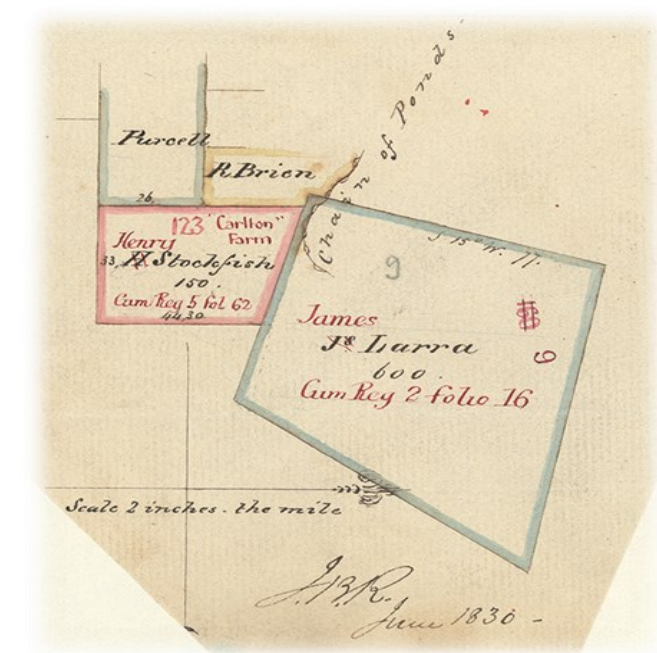 Chain of Ponds.
Purcell
R Brien
26.
123 "Carlton"
Farm
Henry
33. H Stockfish
150.
Cum Reg 5 fol 62
44.30
S 15° W. 77.
9
James
Js Larra
600.
9
Cum Reg 2 folio 16
Scale 2 inches. the mile
J.B.R.
June 1830 -